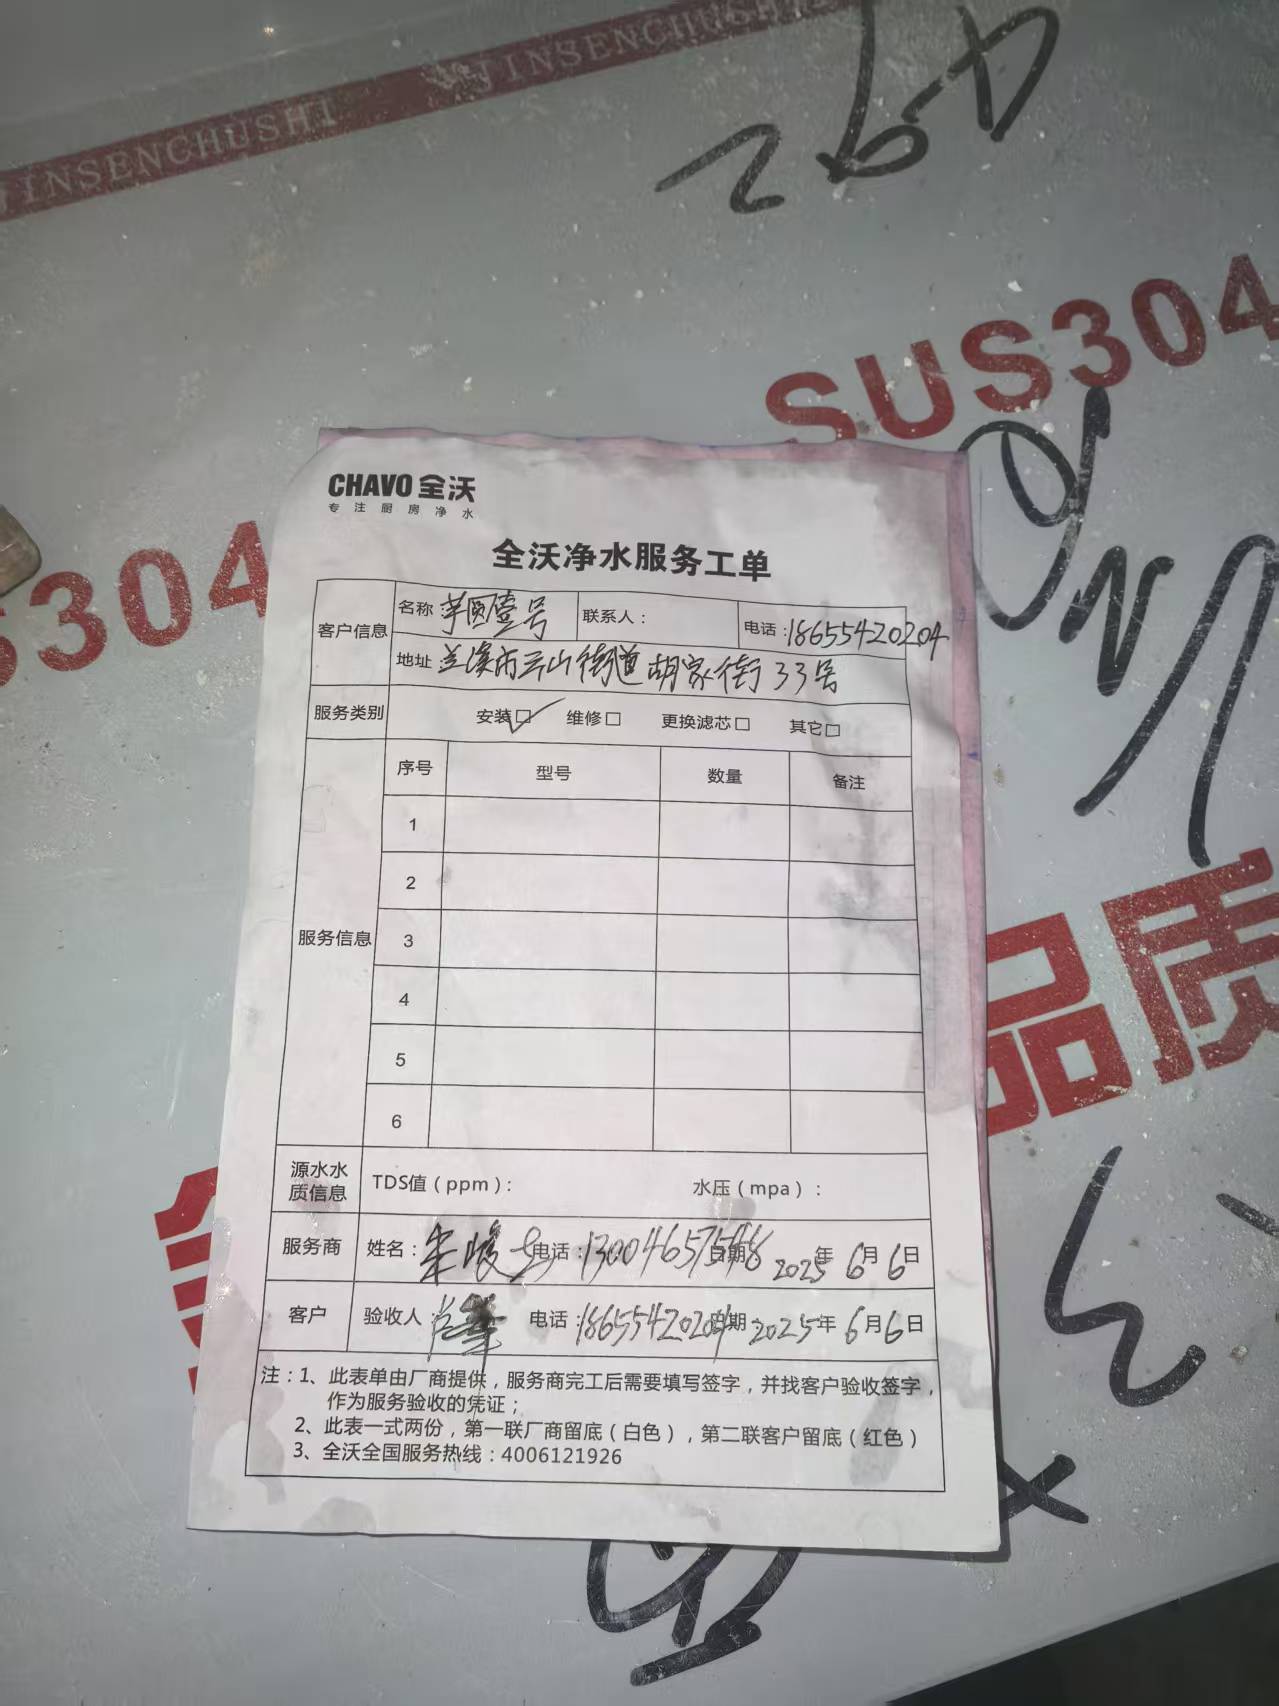 JINSENCHUSHI JINSENCHUSHI
SUS304
SUS304
品质
CHAVO 全沃
专注厨房净水
全沃净水服务工单
客户信息 名称 芋圆壹号 联系人： 电话：18655420204
地址 兰溪市云山街道胡家街33号
服务类别 安装☑ 维修□ 更换滤芯□ 其它□
服务信息 序号 型号 数量 备注
1
2
3
4
5
6
源水水质信息 TDS值（ppm）： 水压（mpa）：
服务商 姓名： 电话：13004657548 日期 2025年6月6日
客户 验收人： 电话：18655420204 日期 2025年6月6日
注：1、此表单由厂商提供，服务商完工后需要填写签字，并找客户验收签字，
作为服务验收的凭证；
2、此表一式两份，第一联厂商留底（白色），第二联客户留底（红色）
3、全沃全国服务热线：4006121926